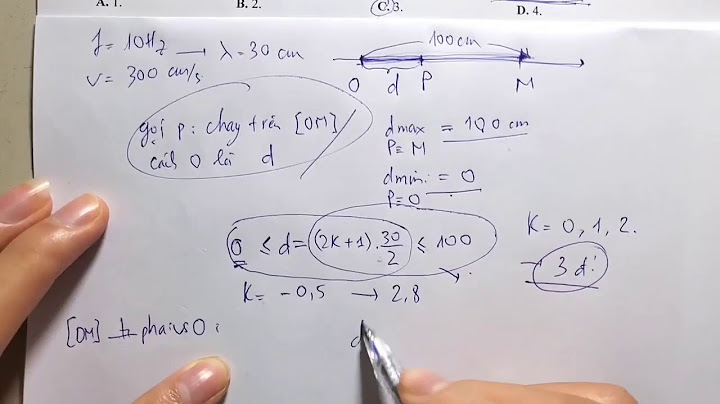 A. 1. B. 2. C. 3. D. 4.
f = 10Hz → λ = 30 cm
v = 300 cm/s
100cm
O d P M
gọi P: chạy trên [OM]
cách O là d
dmax = 100 cm
P≡M
dmin = 0
P≡O
0 ≤ d = (2k+1).30/2 ≤ 100
K = -0,5 → 2,8
K = 0, 1, 2.
→ 3 đ'
[OM] phaivsO :
d